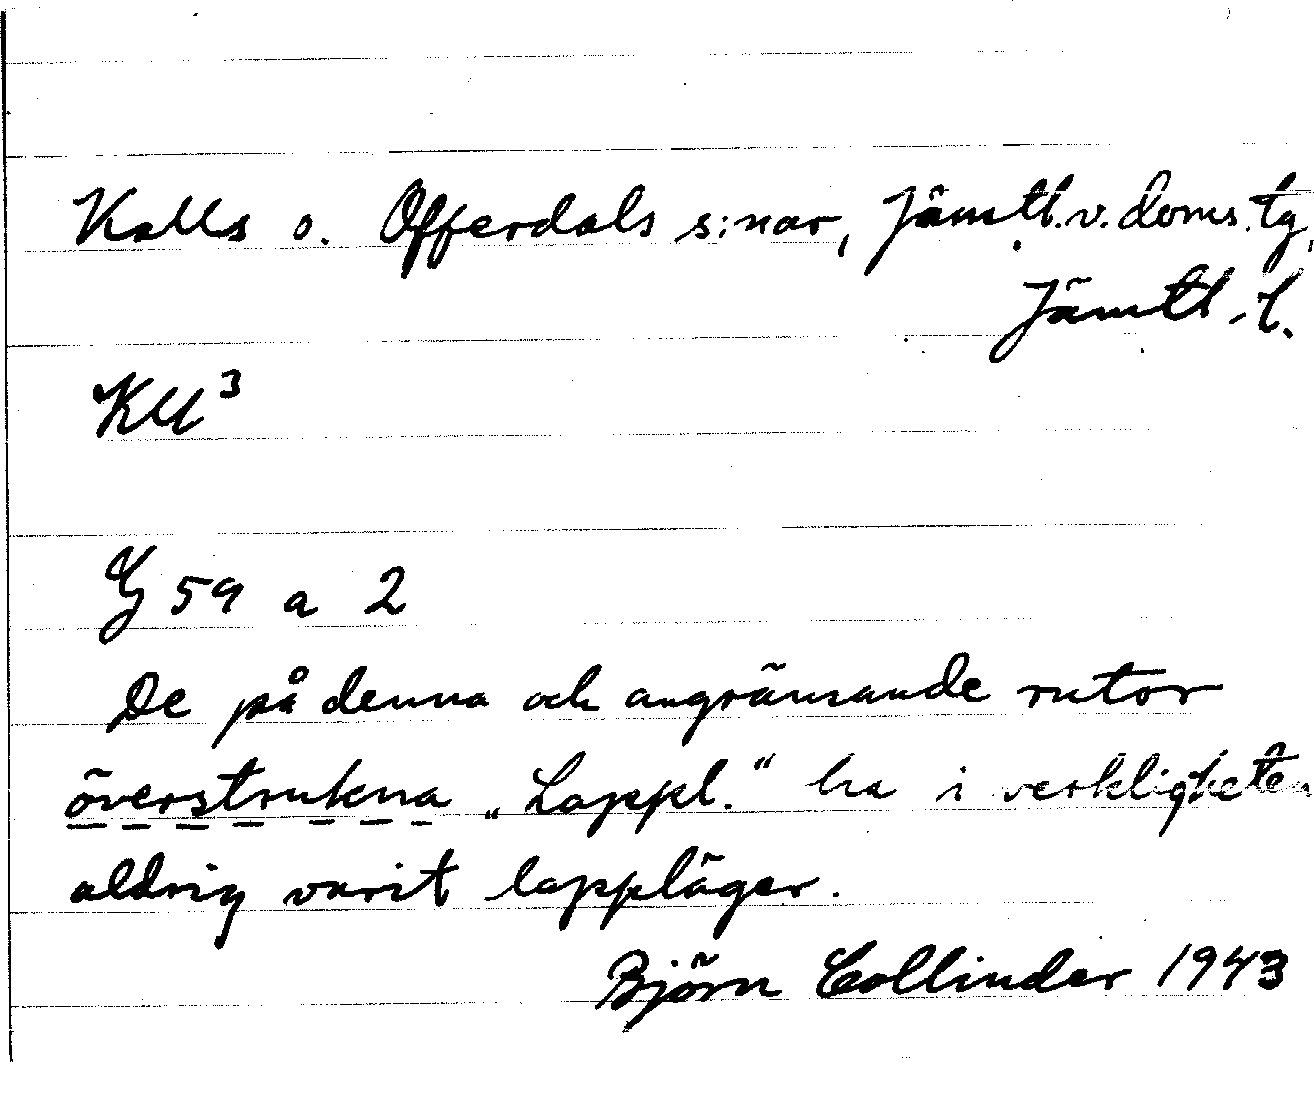 Kalls o. Offerdals s:nar, Jämtl. v. doms. tg,
Jämtl. l.
KU³
G 59 a 2
De på denna och angränsande rutor
överstrukna „Lappl.“ ha i verkligheten
aldrig varit lappläger.
Björn Collinder 1943